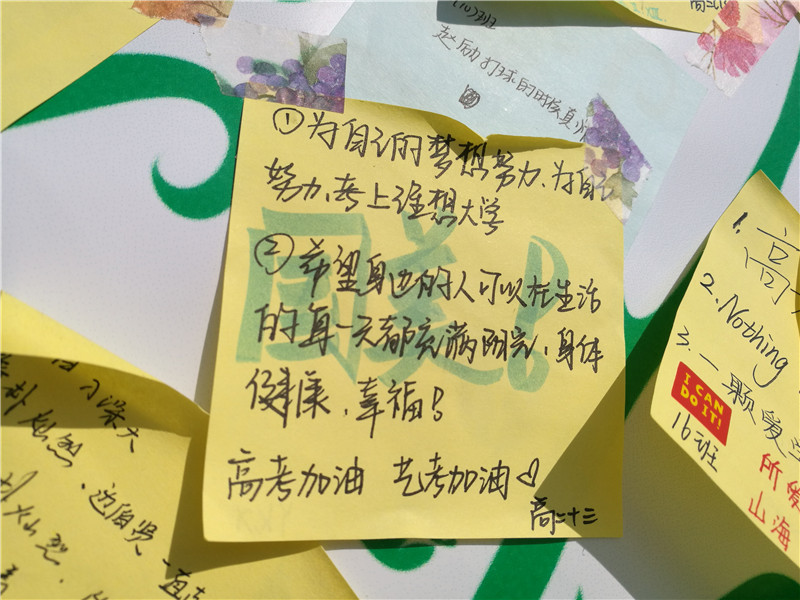 (10)班
赵励打球的时候真
①为自己的梦想努力、为自己
努力,考上理想大学
国美!
②希望身边的人可以在生活
的每一天都充满阳光,身体
健康、幸福!
高考加油 艺考加油♡
高二十三
1. 高
2. Nothing
3. 一颗爱
I CAN
DO IT!
16班
所爱
山海
、边伯贤一直
灿烈